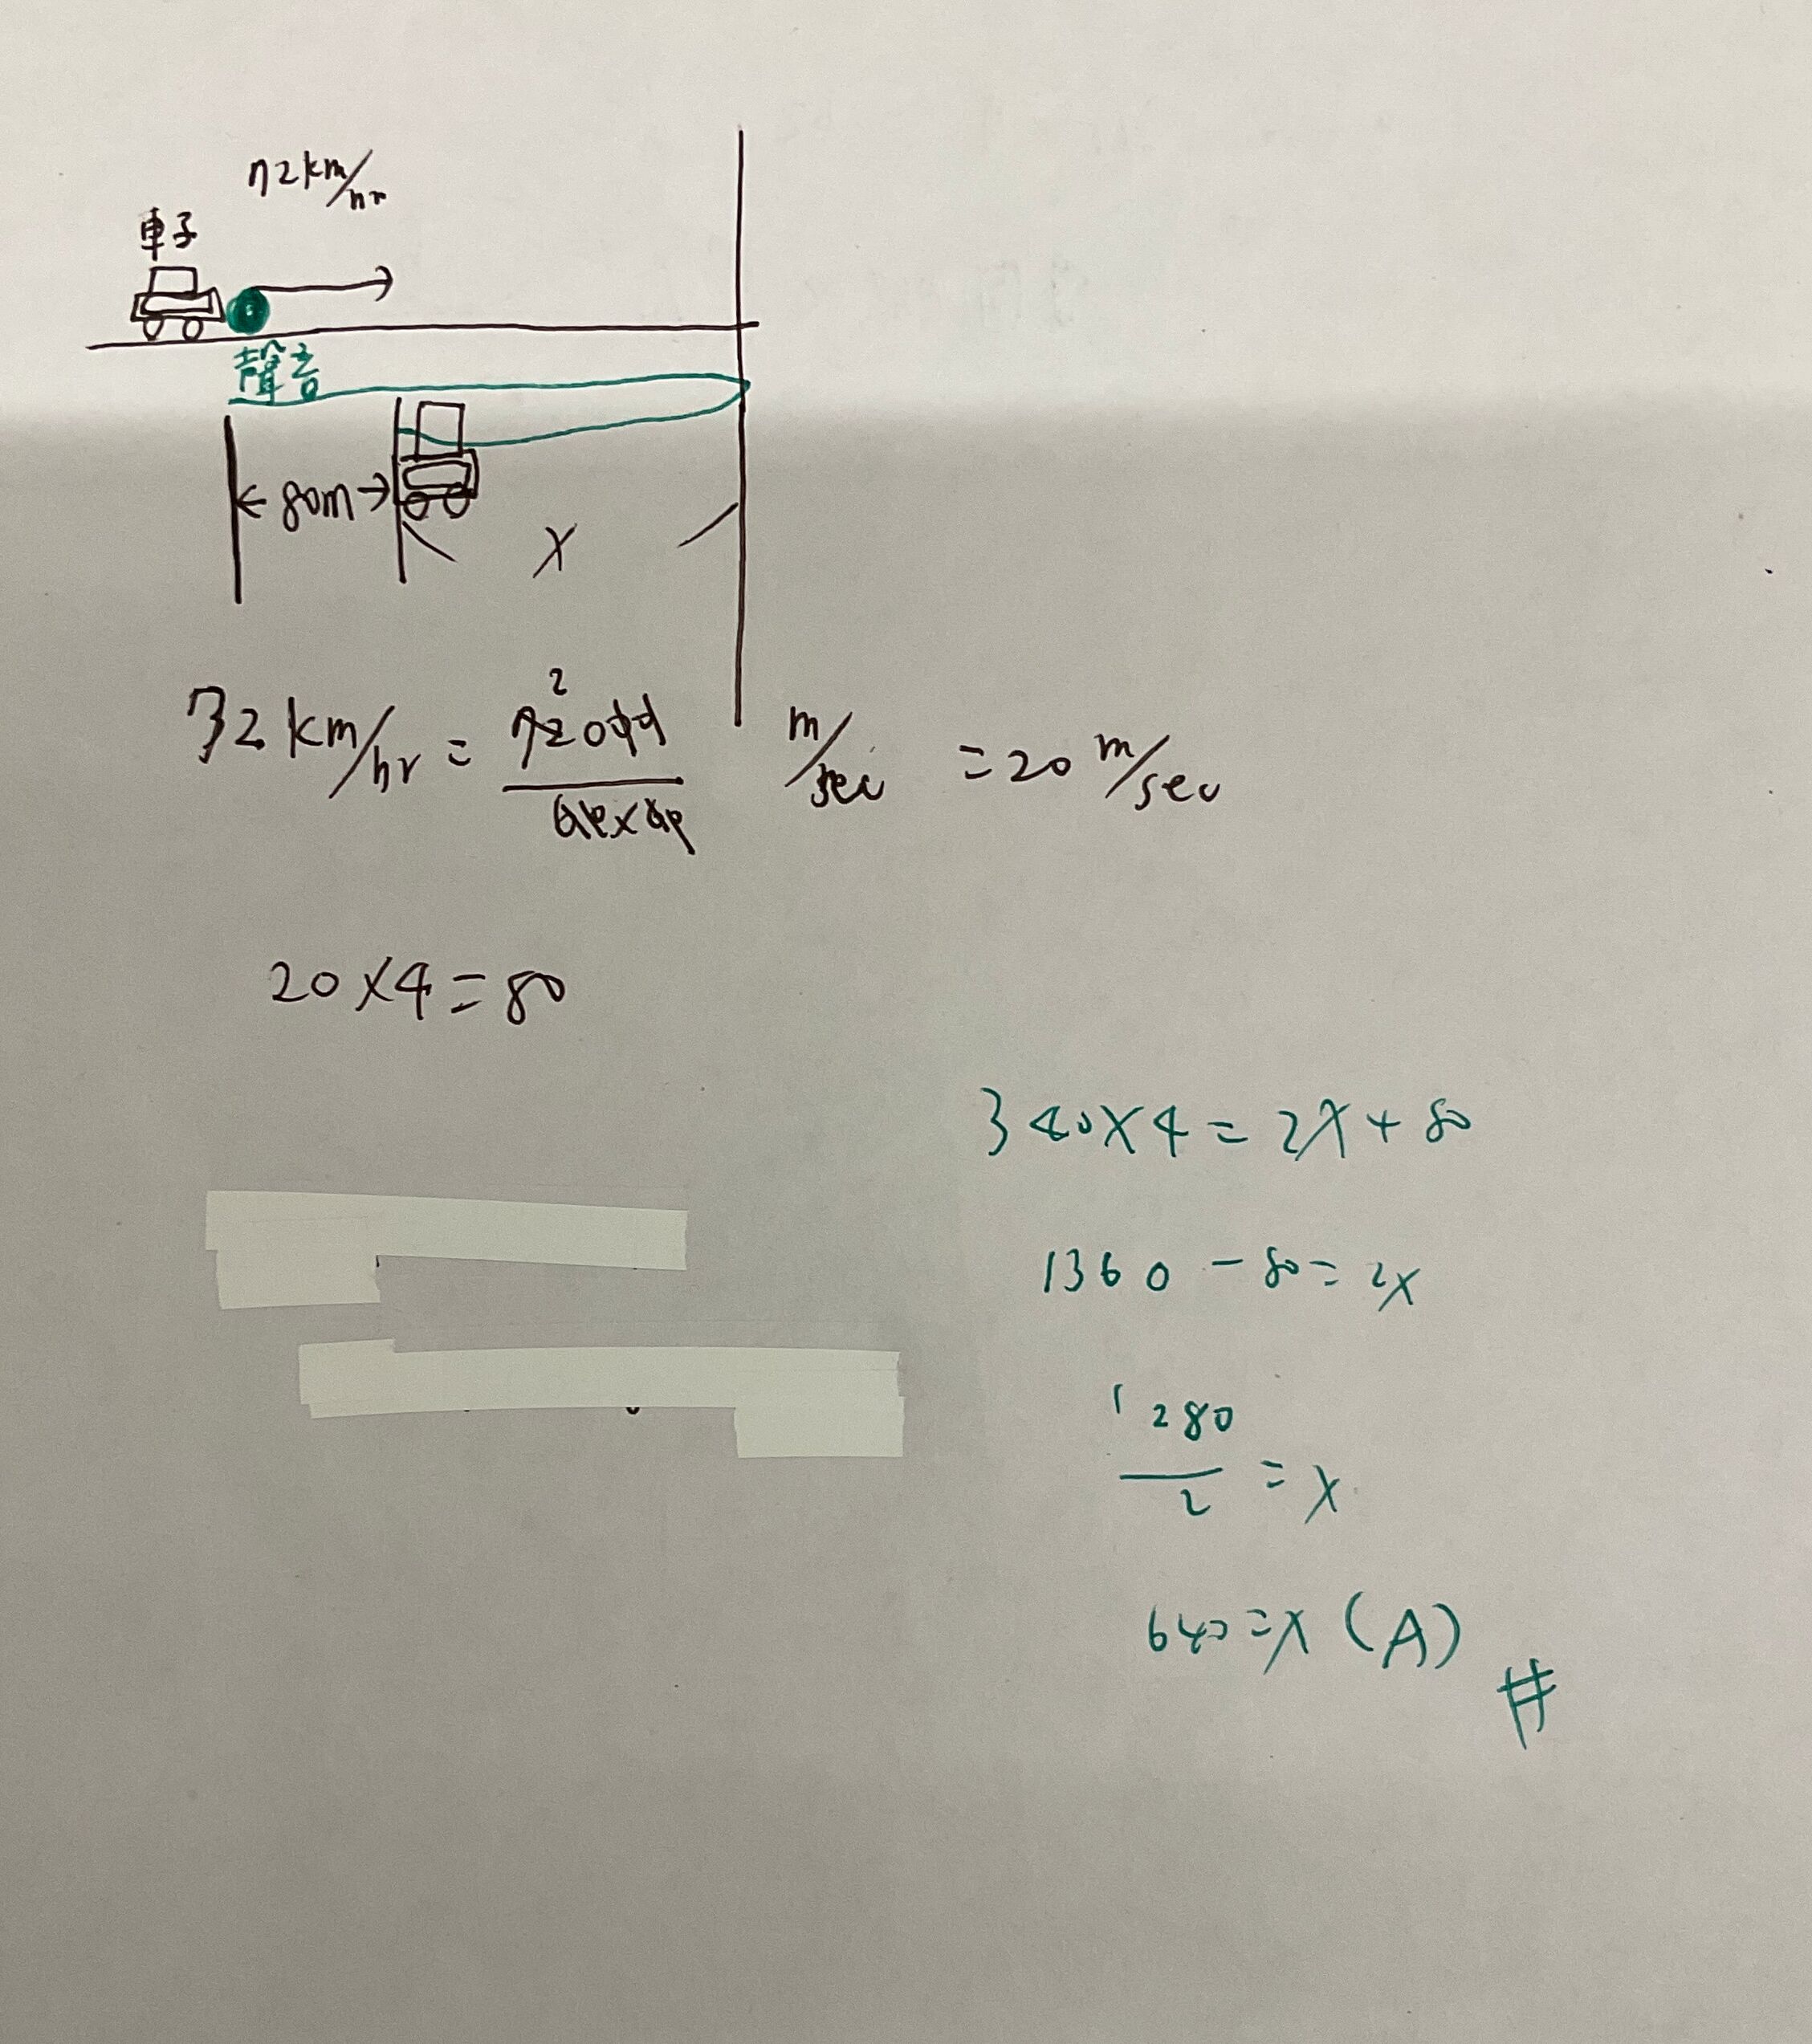 72km/hr
車子
聲音
80m
X
72km/hr = 72000/60×60 m/sec = 20 m/sec
2
20×4=80
340×4=2X+80
1360-80=2X
1280/2=X
640=X (A)
#